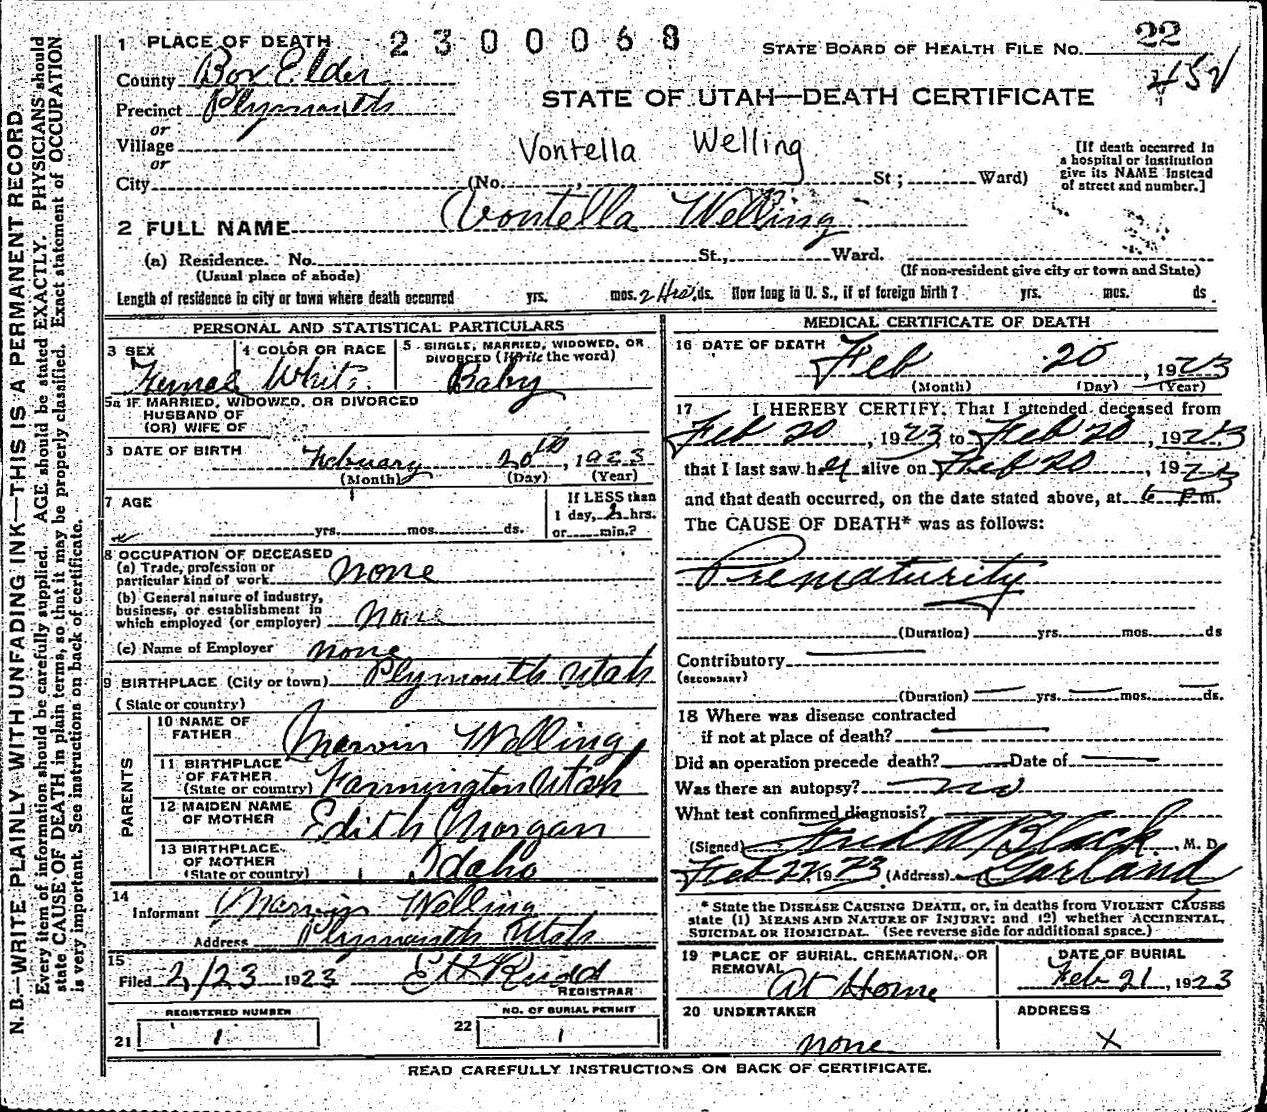 1 PLACE OF DEATH 2300068 STATE BOARD OF HEALTH FILE NO. 22
County Box Elder
Precinct Plymouth STATE OF UTAH—DEATH CERTIFICATE
or
Village Vontella Welling
or
City (No. St; Ward)
[If death occurred in a hospital or institution give its NAME instead of street and number.]
2 FULL NAME Vontella Welling
(a) Residence. No. St., Ward.
(Usual place of abode) (If non-resident give city or town and State)
Length of residence in city or town where death occurred yrs. mos. 2 Hrs. ds. How long in U. S., if of foreign birth? yrs. mos. ds
PERSONAL AND STATISTICAL PARTICULARS
3 SEX 4 COLOR OR RACE 5 SINGLE, MARRIED, WIDOWED, OR DIVORCED (Write the word)
Female White. Baby
5a IF MARRIED, WIDOWED, OR DIVORCED
HUSBAND OF
(OR) WIFE OF
DATE OF BIRTH February 20th, 1923
(Month) (Day) (Year)
7 AGE If LESS than
1 day, 2 hrs.
yrs. mos. ds. or min.?
8 OCCUPATION OF DECEASED
(a) Trade, profession or
particular kind of work none
(b) General nature of industry,
business, or establishment in
which employed (or employer) none
(c) Name of Employer none
9 BIRTHPLACE (City or town) Plymouth Utah
(State or country)
PARENTS
10 NAME OF
FATHER Marvin Welling
11 BIRTHPLACE
OF FATHER
(State or country) Farmington Utah
12 MAIDEN NAME
OF MOTHER Edith Morgan
13 BIRTHPLACE
OF MOTHER
(State or country) Idaho
14
Informant Marvin Welling
Address Plymouth Utah
15
Filed 2/23 1923 E H Rudd
REGISTRAR
REGISTERED NUMBER NO. OF BURIAL PERMIT
21 1 22 1
MEDICAL CERTIFICATE OF DEATH
16 DATE OF DEATH
Feb 20, 1923
(Month) (Day) (Year)
17 I HEREBY CERTIFY, That I attended deceased from
Feb 20, 1923 to Feb 20, 1923
that I last saw her alive on Feb 20, 1923
and that death occurred, on the date stated above, at 6 p.m.
The CAUSE OF DEATH* was as follows:
Prematurity
(Duration) yrs. mos. ds
Contributory
(SECONDARY)
(Duration) yrs. mos. ds.
18 Where was disease contracted
if not at place of death?
Did an operation precede death? Date of
Was there an autopsy? no
What test confirmed diagnosis?
(Signed) Fred W Black M. D.
Feb 22, 1923 (Address) Garland
* State the DISEASE CAUSING DEATH, or, in deaths from VIOLENT CAUSES
state (1) MEANS AND NATURE OF INJURY; and (2) whether ACCIDENTAL,
SUICIDAL OR HOMICIDAL. (See reverse side for additional space.)
19 PLACE OF BURIAL, CREMATION, OR
REMOVAL At Home
DATE OF BURIAL
Feb 21, 1923
20 UNDERTAKER ADDRESS
none X
READ CAREFULLY INSTRUCTIONS ON BACK OF CERTIFICATE.
N. B.—WRITE PLAINLY WITH UNFADING INK—THIS IS A PERMANENT RECORD.
Every item of information should be carefully supplied. AGE should be stated EXACTLY. PHYSICIANS should
state CAUSE OF DEATH in plain terms, so that it may be properly classified. Exact statement of OCCUPATION
is very important. See instructions on back of certificate.